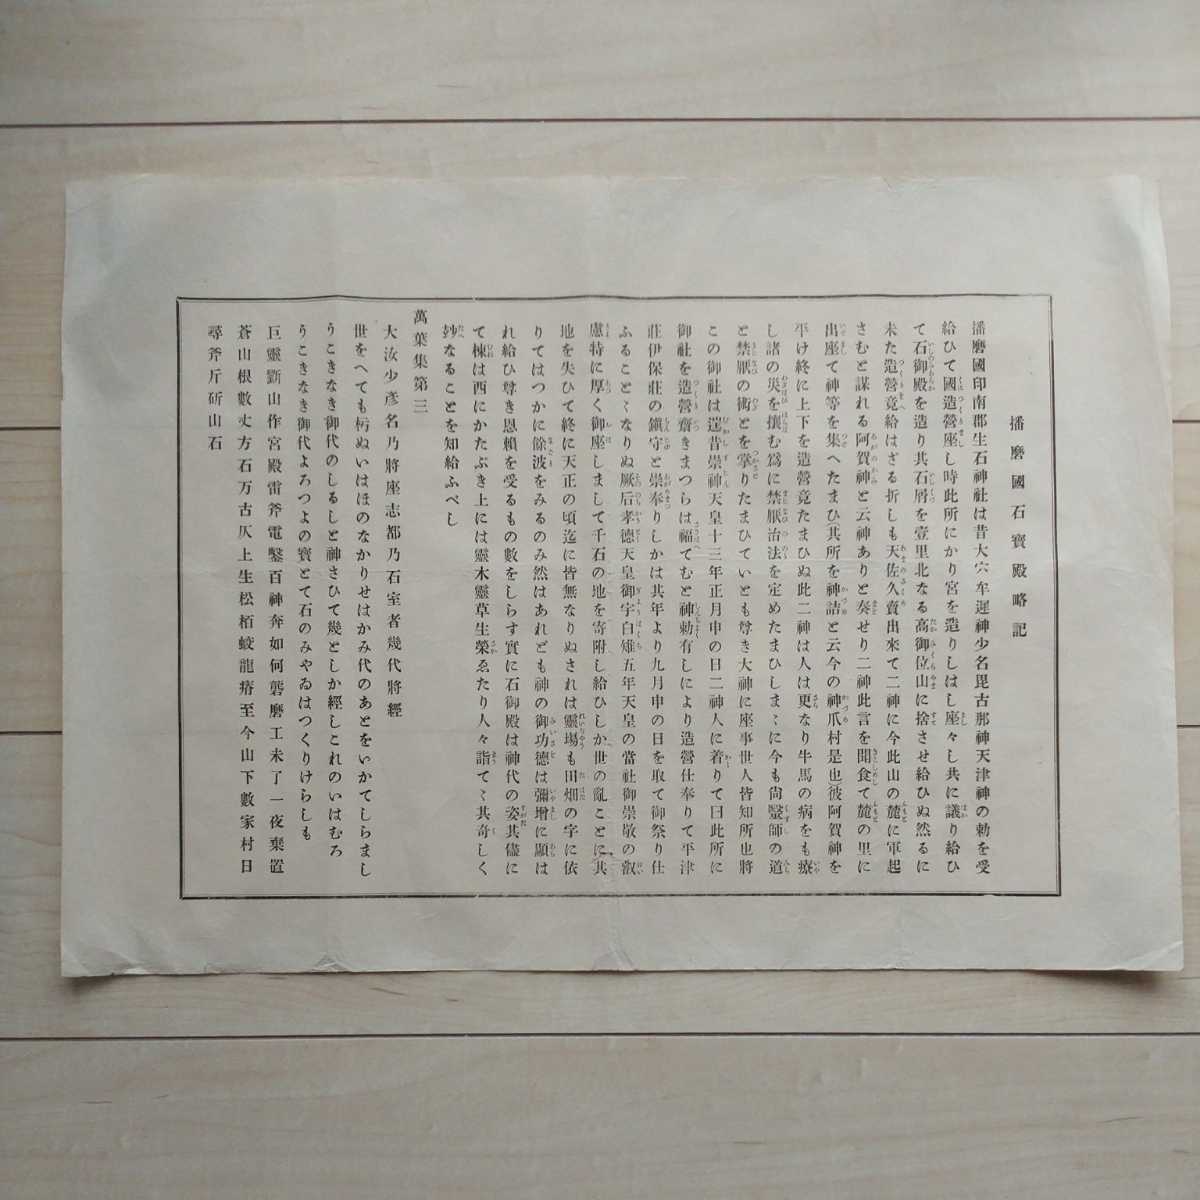 播磨國石寶殿略記
播磨國印南郡生石神社は昔大穴牟遲神少名毘古那神天津神の勅を受
給ひて國造營座し時此所にかり宮を造りしはし座々し共に議り給ひ
て石御殿を造り其石屑を壹里北なる高御位山に捨させ給ひぬ然るに
未た造營竟給はざる折しも天佐久賣出來て二神に今此山の麓に軍起
さむと謀れる阿賀神と云神ありと奏せり二神此言を聞食て麓の里に
出座て神等を集へたまひ其所を神詰と云今の神爪村是也彼阿賀神を
平け終に上下を造營竟たまひぬ此二神は人は更なり牛馬の病をも療
し諸の災を攘む爲に禁厭治法を定めたまひしまゝに今も尙醫師の道
と禁厭の術とを掌りたまひていとも尊き大神に座事世人皆知所也將
この御社は遑昔崇神天皇十三年正月申の日二神人に着りて曰此所に
御社を造營齋きまつらは福てむと神勅有しにより造營仕奉りて平津
莊伊保莊の鎭守と崇奉りしかは其年より九月申の日を取て御祭り仕
ふることゝなりぬ厥后孝德天皇御宇白雉五年天皇の當社御崇敬の叡
慮特に厚く御座しまして千石の地を寄附し給ひしか世の亂ことに其
地を失ひて終に天正の頃迄に皆無なりぬされは靈場も田畑の字に依
りてはつかに餘波をみるのみ然はあれども神の御功德は彌增に顯は
れ給ひ尊き恩賴を受るもの數をしらす實に石御殿は神代の姿其儘に
て棟は西にかたぶき上には靈木靈草生榮ゑたり人々詣てゝ其奇しく
妙なることを知給ふべし
萬葉集第三
大汝少彥名乃將座志都乃石室者幾代將經
世をへても朽ぬいはほのなかりせはかみ代のあとをいかてしらまし
うこきなき御代のしるしと神さひて幾としか經しこれのいはむろ
うこきなき御代よろつよの寶とて石のみやゐはつくりけらしも
巨靈斲山作宮殿雷斧電鑿百神奔如何礱磨工未了一夜棄置
蒼山根數丈方石万古仄上生松栢蛟龍瘠至今山下數家村日
尋斧斤斫山石